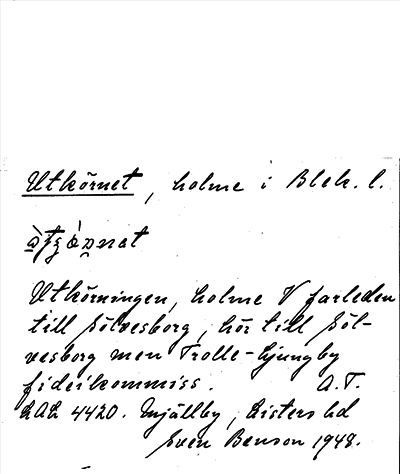 Utkörnet, holme i Blek. l.
Utkörningen, holme V farleden
till Sölvesborg, hör till Söl-
vesborg men Trolle-Ljungby
fideikommiss. A.T.
LAL 4420. Mjällby, Listers hd
Sven Benson 1948.